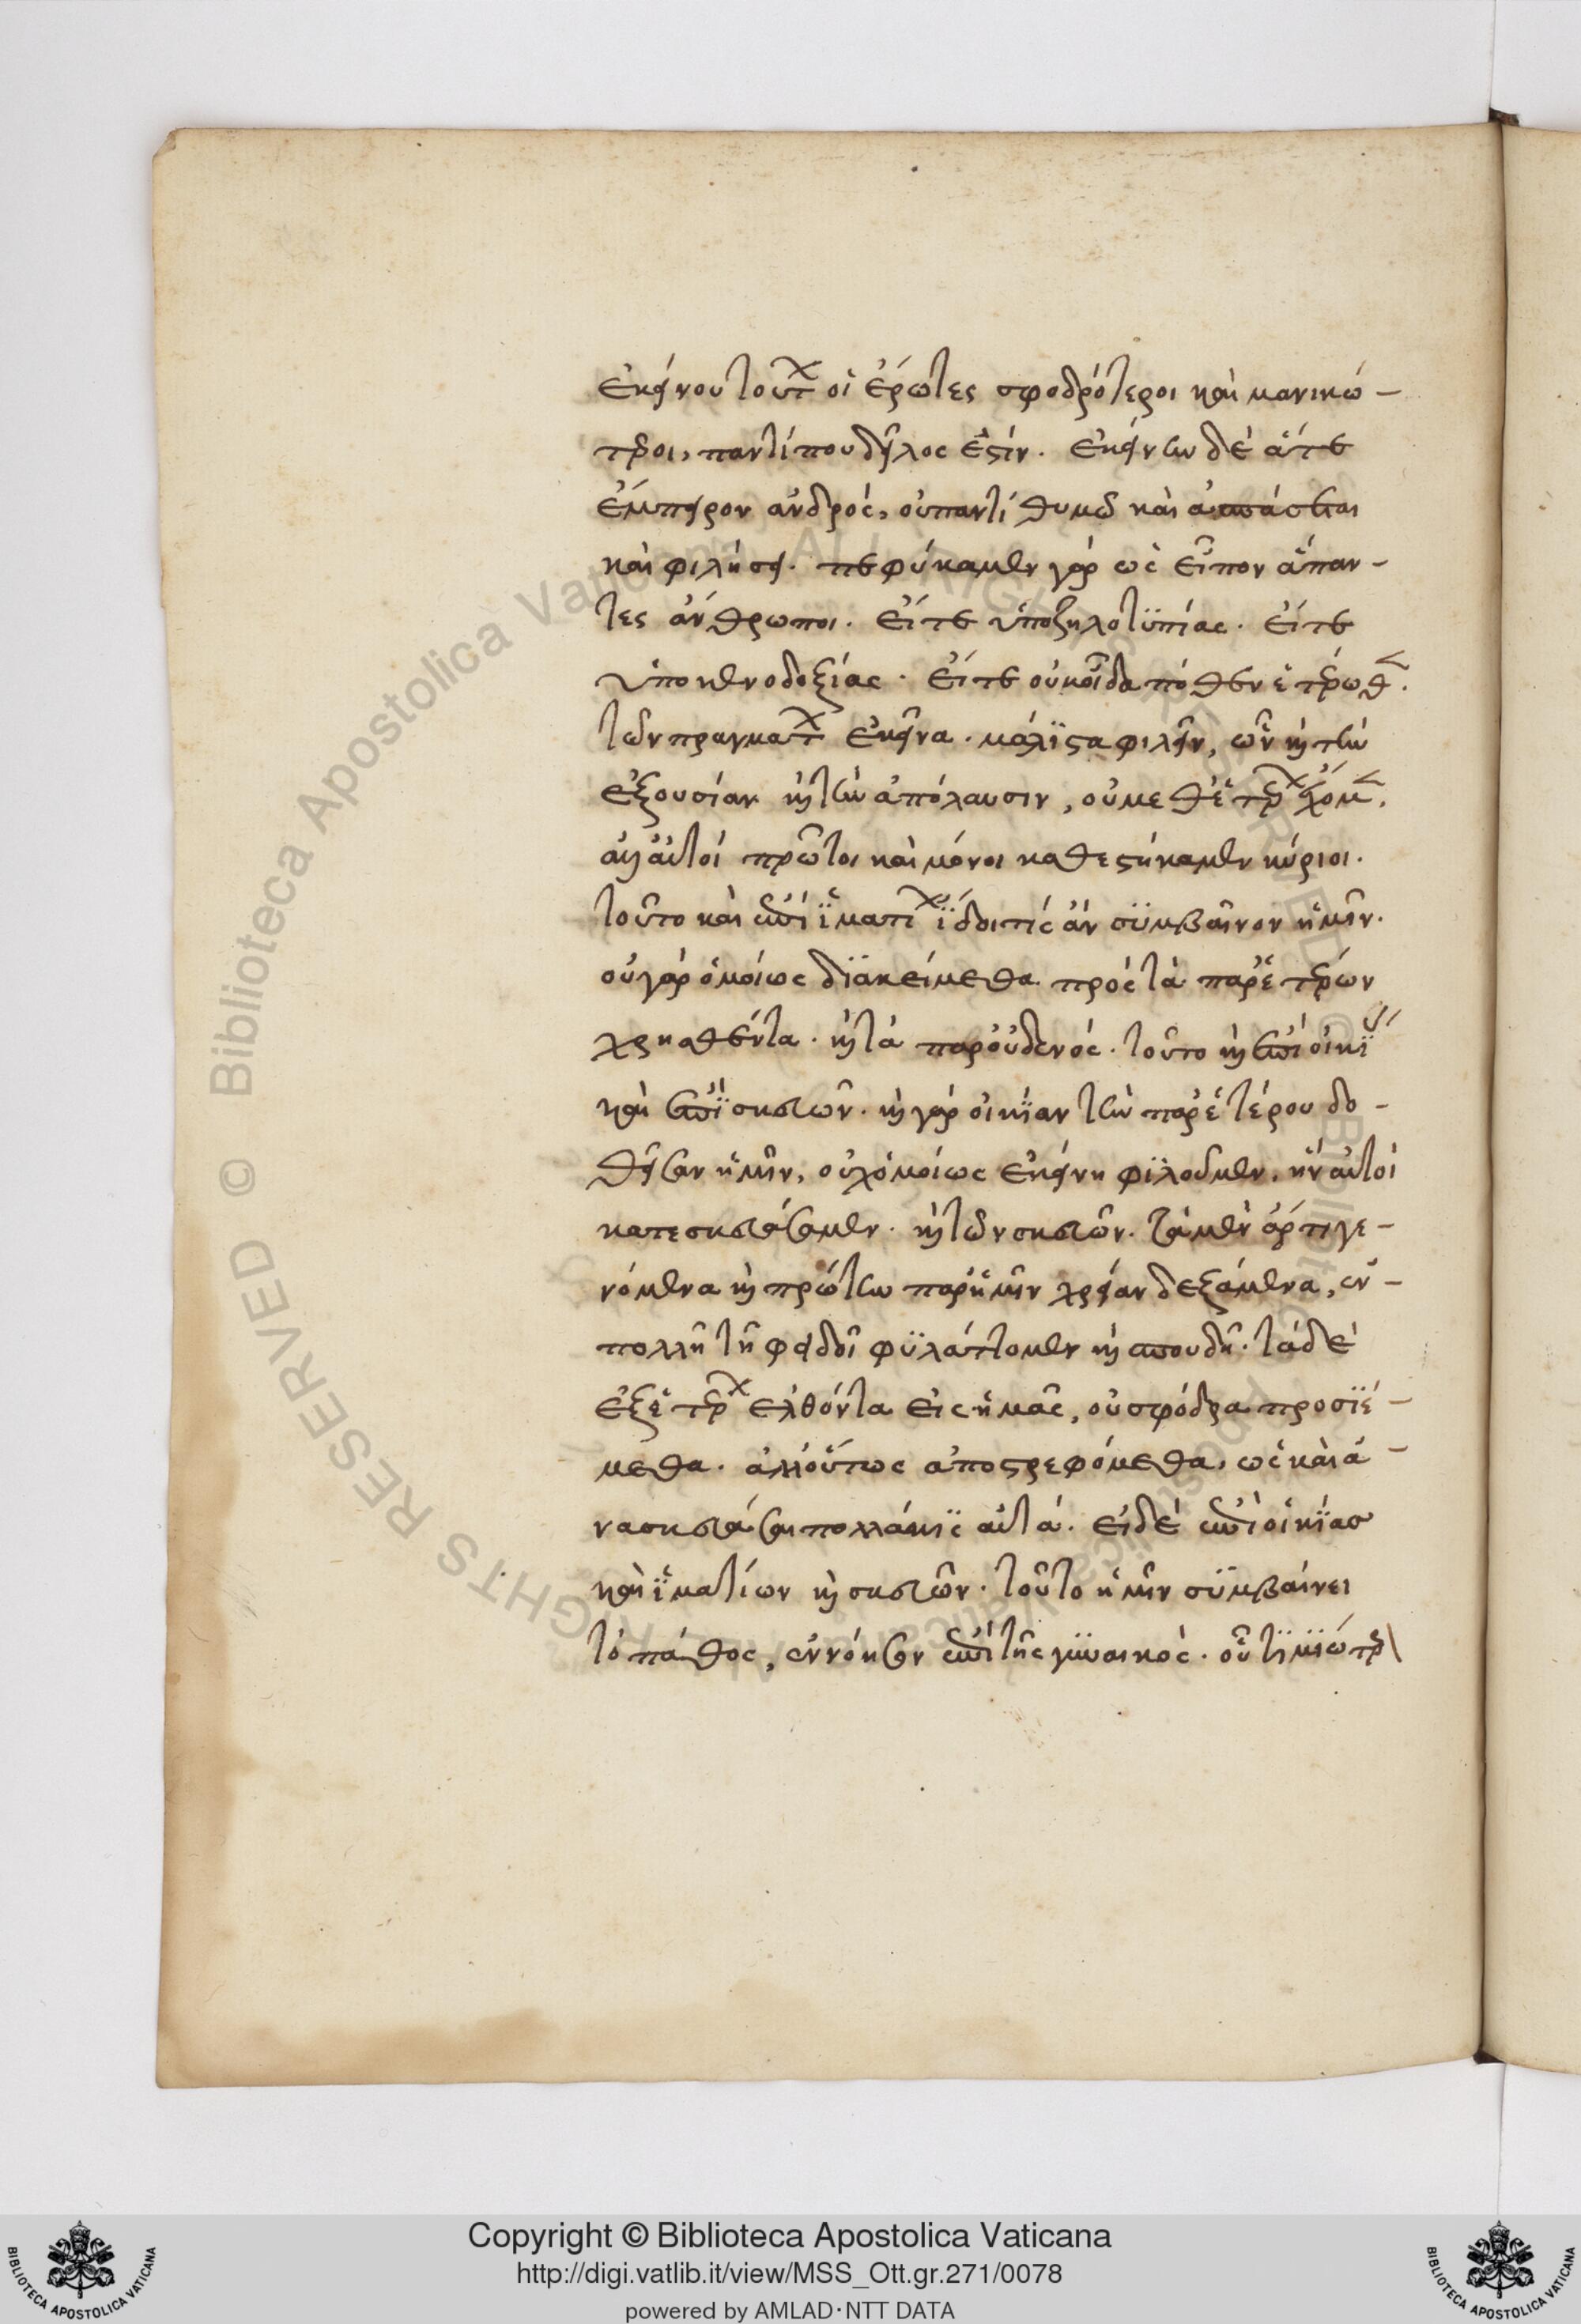 ἐκείνου τούτων οἱ ἔρωτες σφοδρότεροι καὶ μανικώ-
τεροι, παντί που δῆλός ἐστιν. ἐκείνην δὲ ἅτε
ἔμπειρον ἀνδρός, οὐ παντὶ θυμῷ καὶ ἀσπάσεται
καὶ φιλήσει. πεφύκαμεν γάρ ὡς εἶπον ἅπαν-
τες ἄνθρωποι. εἴτε ὑπὸ ζηλοτυπίας. εἴτε
ὑπὸ κενοδοξίας. εἴτε οὐκ οἶδα πόθεν ἑτέρωθεν.
τῶν πραγμάτων ἐκεῖνα. μάλιστα φιλεῖν, ὧν καὶ τὴν
ἐξουσίαν καὶ τὴν ἀπόλαυσιν, οὐ μεθ' ἑτέρων ἔχομεν.
ἀλλ' αὐτοὶ πρῶτοι καὶ μόνοι καθεστήκαμεν κύριοι.
τοῦτο καὶ ἐπὶ ἱματίων ἴδοι τίς ἂν συμβαῖνον ἡμῖν.
οὐ γὰρ ὁμοίως διακείμεθα πρὸς τὰ παρ' ἑτέρων
χρησθέντα. καὶ τὰ παρ' οὐδενός. τοῦτο καὶ ἐπὶ οἰκιῶν
καὶ ἐπὶ σκευῶν. καὶ γὰρ οἰκίαν τὴν παρ' ἑτέρου δο-
θεῖσαν ἡμῖν, οὐχ ὁμοίως ἐκείνῃ φιλοῦμεν, ἣν αὐτοὶ
κατεσκευάσαμεν. καὶ τῶν σκευῶν. τὰ μὲν ἄρτι γε-
νόμενα καὶ πρώτην παρ' ἡμῖν χρείαν δεξάμενα, ἐν
πολλῇ τῇ φειδοῖ φυλάττομεν καὶ σπουδῇ. τὰ δὲ
ἐξ ἑτέρων ἐλθόντα εἰς ἡμᾶς, οὐ σφόδρα προσιέ-
μεθα. ἀλλ' οὕτως ἀποστρεφόμεθα, ὡς καὶ ἀ-
νασκευάσαι πολλάκις αὐτά. εἰ δὲ ἐπὶ οἰκίας
καὶ ἱματίων καὶ σκευῶν. τοῦτο ἡμῖν συμβαίνει
τὸ πάθος, ἐννόησον ἐπὶ τῆς γυναικός. οὗ τιμιώτερον